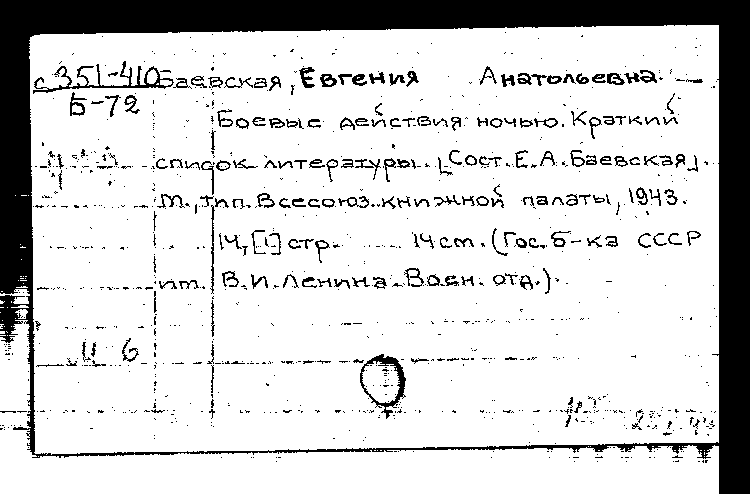 с 351-410 Баевская, Евгения Анатольевна.
Б-72
Боевые действия ночью. Краткий
список литературы. [Сост. Е. А. Баевская].
М., тип. Всесоюз. книжной палаты, 1943.
14, [1] стр. 14 см. (Гос. б-ка СССР
им. В. И. Ленина. Воен. отд.).
М 6